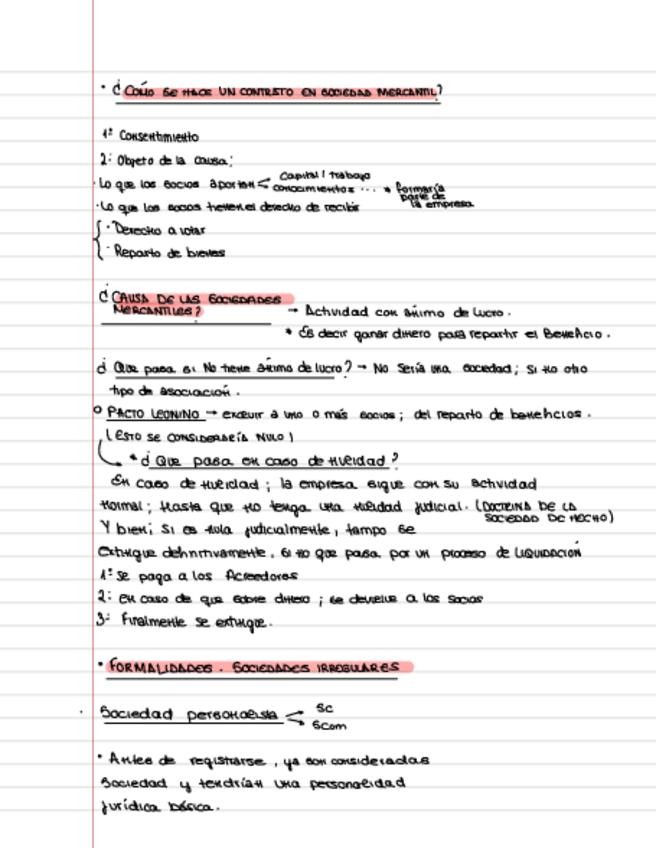 · ¿Cómo se hace un contrato en sociedad mercantil?
1º Consentimiento
2º Objeto de la causa:
· Lo que los socios aportan < Capital / trabajo
conocimientos ... * formaría parte de la empresa
· Lo que los socios tienen el derecho de recibir
{ · Derecho a votar
· Reparto de bienes
¿CAUSA DE LAS SOCIEDADES
MERCANTILES? → Actividad con ánimo de lucro.
* Es decir ganar dinero para repartir el Beneficio.
¿Que pasa si No tiene ánimo de lucro? → No sería una sociedad; si no otro
tipo de asociación.
o PACTO LEONINO → excluir a uno o más socios; del reparto de beneficios.
(ESTO SE CONSIDERARÍA NULO)
* ¿Que pasa en caso de nulidad?
En caso de nulidad; la empresa sigue con su actividad
normal; hasta que no tenga una nulidad judicial. (DOCTRINA DE LA
SOCIEDAD DE HECHO)
Y bien; si es nula judicialmente, tampo se
extingue definitivamente, si no que pasa por un proceso de LIQUIDACIÓN
1º Se paga a los Acreedores
2º en caso de que sobre dinero; se devuelve a los socios
3º Finalmente se extingue.
· FORMALIDADES. SOCIEDADES IRREGULARES
· Sociedad personalista < SC
SCom
· Antes de registrarse, ya son consideradas
sociedad y tendrían una personalidad
jurídica básica.